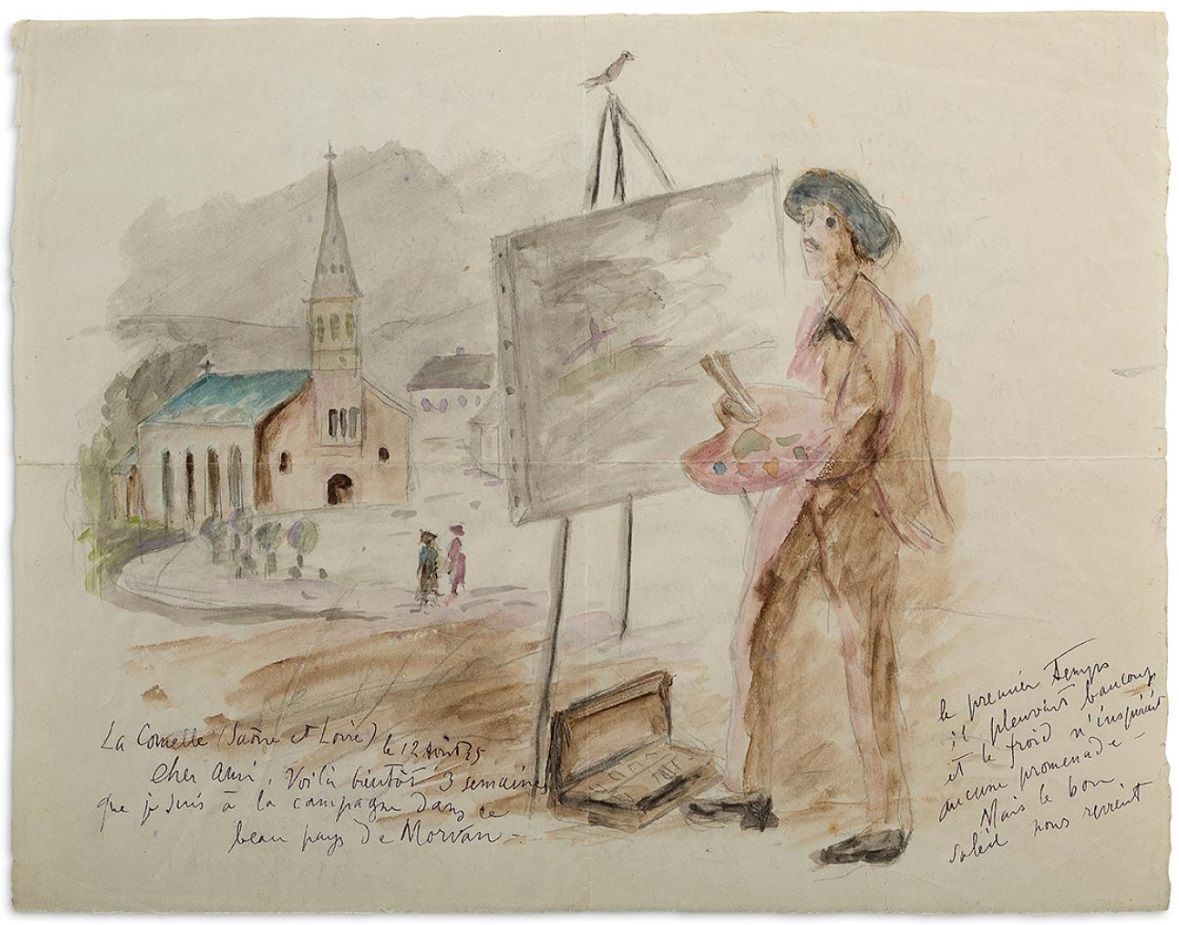 La Comelle (Saône et Loire) le 12 Août 35
Cher Ami, Voilà bientôt 3 semaines
que je suis à la campagne dans ce
beau pays de Morvan –
le premier temps
il pleuvait beaucoup
et le froid n'inspirait
aucune promenade –
Mais le bon
soleil nous revient